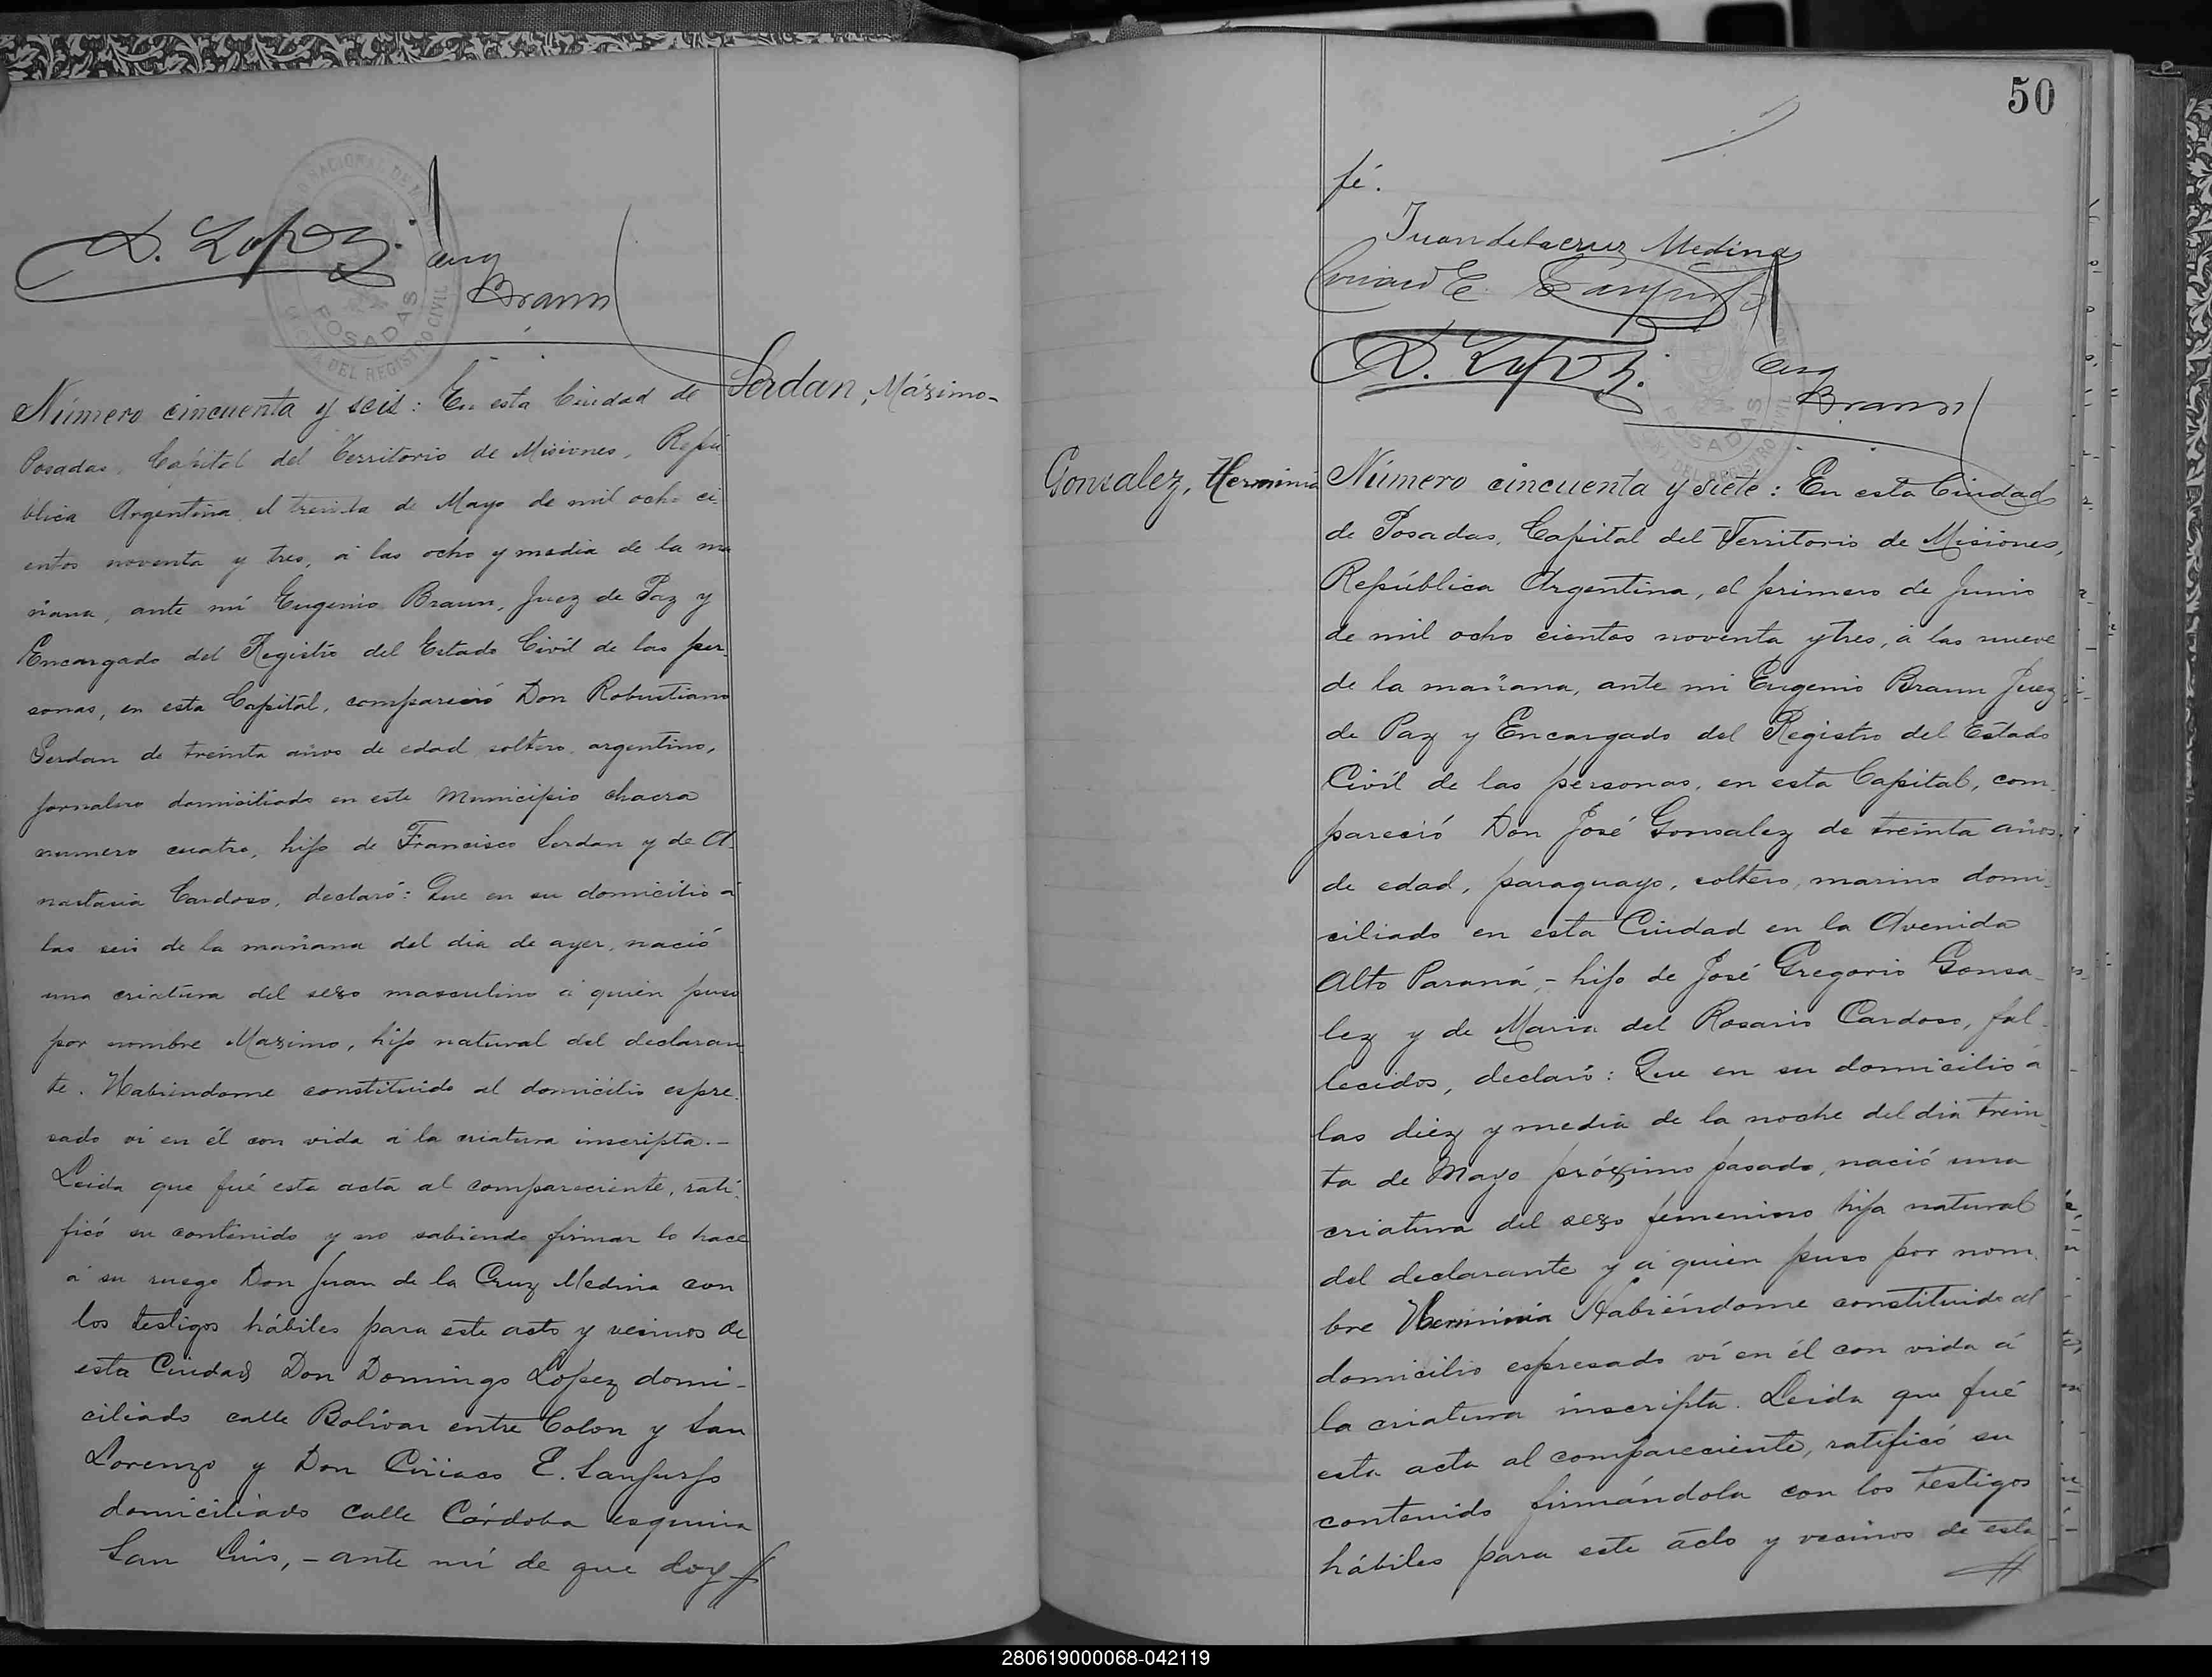 D. Lopez
Eug
Braun
POSADAS
Serdan, Máximo-
Número cincuenta y seis: En esta Ciudad de
Posadas, Capital del Territorio de Misiones, Repú
blica Argentina, el treinta de Mayo de mil ocho ci-
entos noventa y tres, á las ocho y media de la ma
ñana, ante mí Eugenio Braun, Juez de Paz y
Encargado del Registro del Estado Civil de las per-
sonas, en esta Capital, compareció Don Robustiano
Serdan de treinta años de edad soltero, argentino,
jornalero domiciliado en este Municipio chacra
numero cuatro, hijo de Francisco Serdan y de A-
nastasia Cardoso, declaró: Que en su domicilio á
las seis de la mañana del dia de ayer, nació
una criatura del sexo masculino á quien puso
por nombre Maximo, hijo natural del declaran
te. Habiéndome constituido al domicilio espre-
sado ví en él con vida á la criatura inscripta.-
Leida que fué esta acta al compareciente, rati-
ficó su contenido y no sabiendo firmar lo hace
á su ruego Don Juan de la Cruz Medina con
los testigos hábiles para este acto y vecinos de
esta Ciudad Don Domingo Lopez domi-
ciliado calle Bolívar entre Colon y San
Lorenzo y Don Ciriaco E. Sanjurjo
domiciliado calle Córdoba esquina
San Luis, - ante mí de que doy
50
fé.
Juandelacruz Medina
Ciriaco E. Sanjurjo
D. Lopez
Eug
Braun
POSADAS
Gonzalez, Herminia
Número cincuenta y siete: En esta Ciudad
de Posadas, Capital del Territorio de Misiones,
República Argentina, el primero de Junio
de mil ocho cientos noventa y tres, á las nueve
de la mañana, ante mi Eugenio Braun Juez
de Paz y Encargado del Registro del Estado
Civil de las personas, en esta Capital, com-
pareció Don José Gonsalez de treinta años
de edad, paraguayo, soltero, marino domi-
ciliado en esta Ciudad en la Avenida
Alto Paraná,- hijo de José Gregorio Gonsa-
lez y de Maria del Rosario Cardoso, fal-
lecidos, declaró: Que en su domicilio á
las diez y media de la noche del dia trein-
ta de Mayo próximo pasado, nació una
criatura del sexo femenino hija natural
del declarante y á quien puso por nom-
bre Herminia Habiéndome constituido al
domicilio espresado ví en él con vida á
la criatura inscripta. Leida que fué
esta acta al compareciente, ratificó su
contenido firmándola con los testigos
hábiles para este acto y vecinos de esta
280619000068-042119